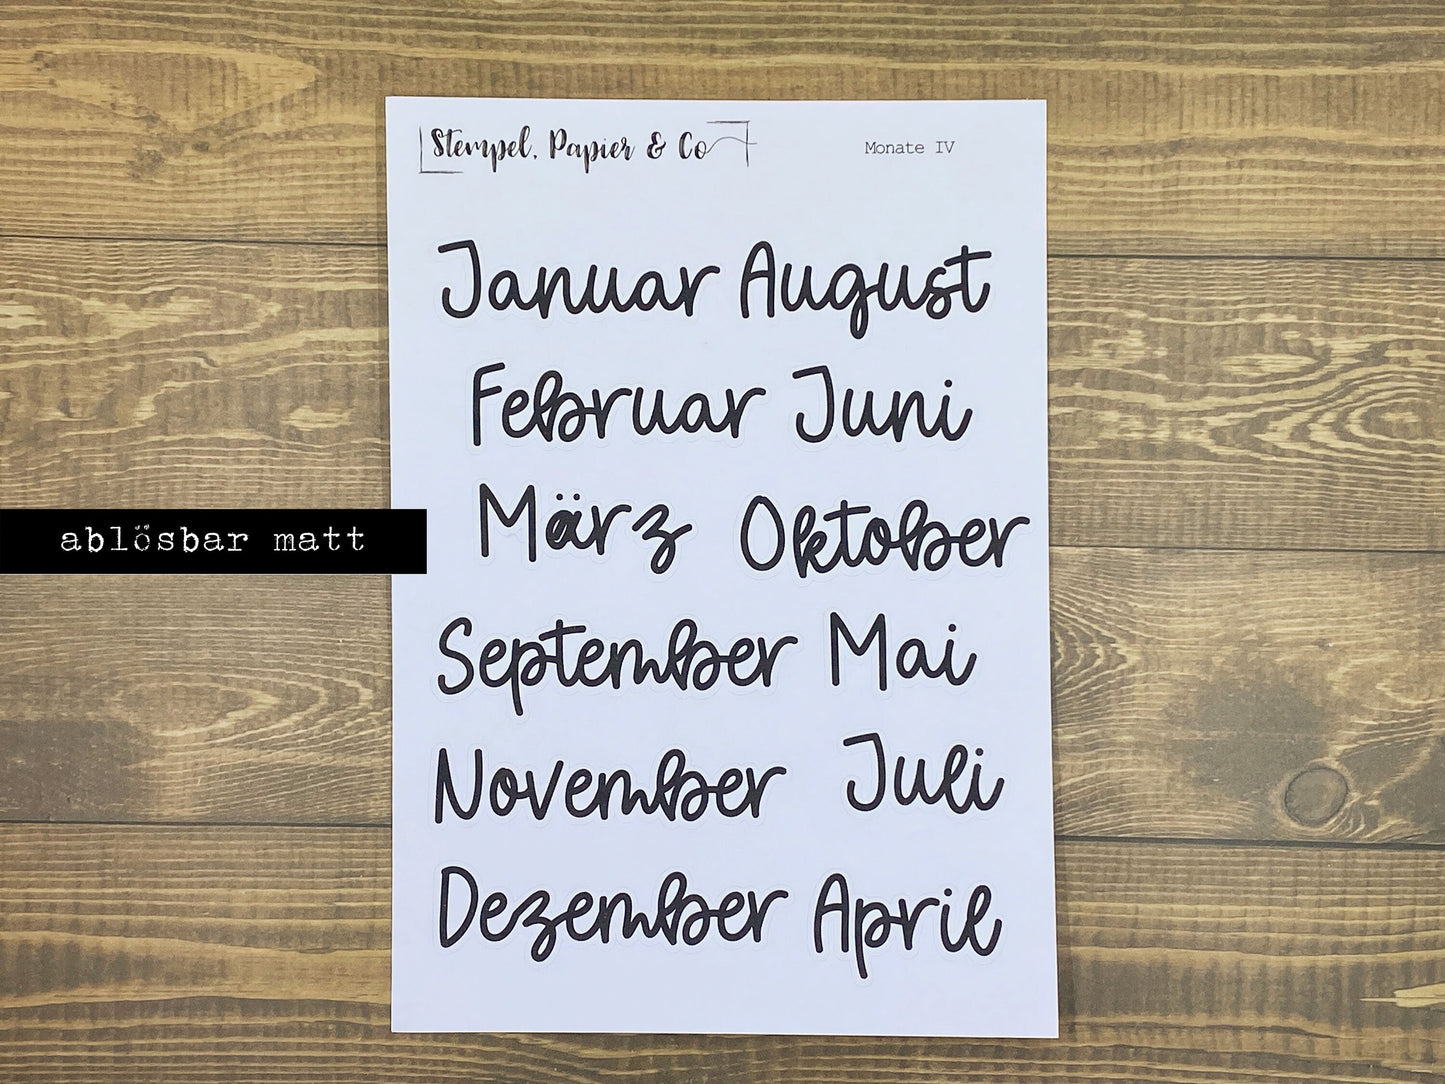 Stempel, Papier & Co
Monate IV
Januar August
Februar Juni
März Oktober
ablösbar matt
September Mai
November Juli
Dezember April